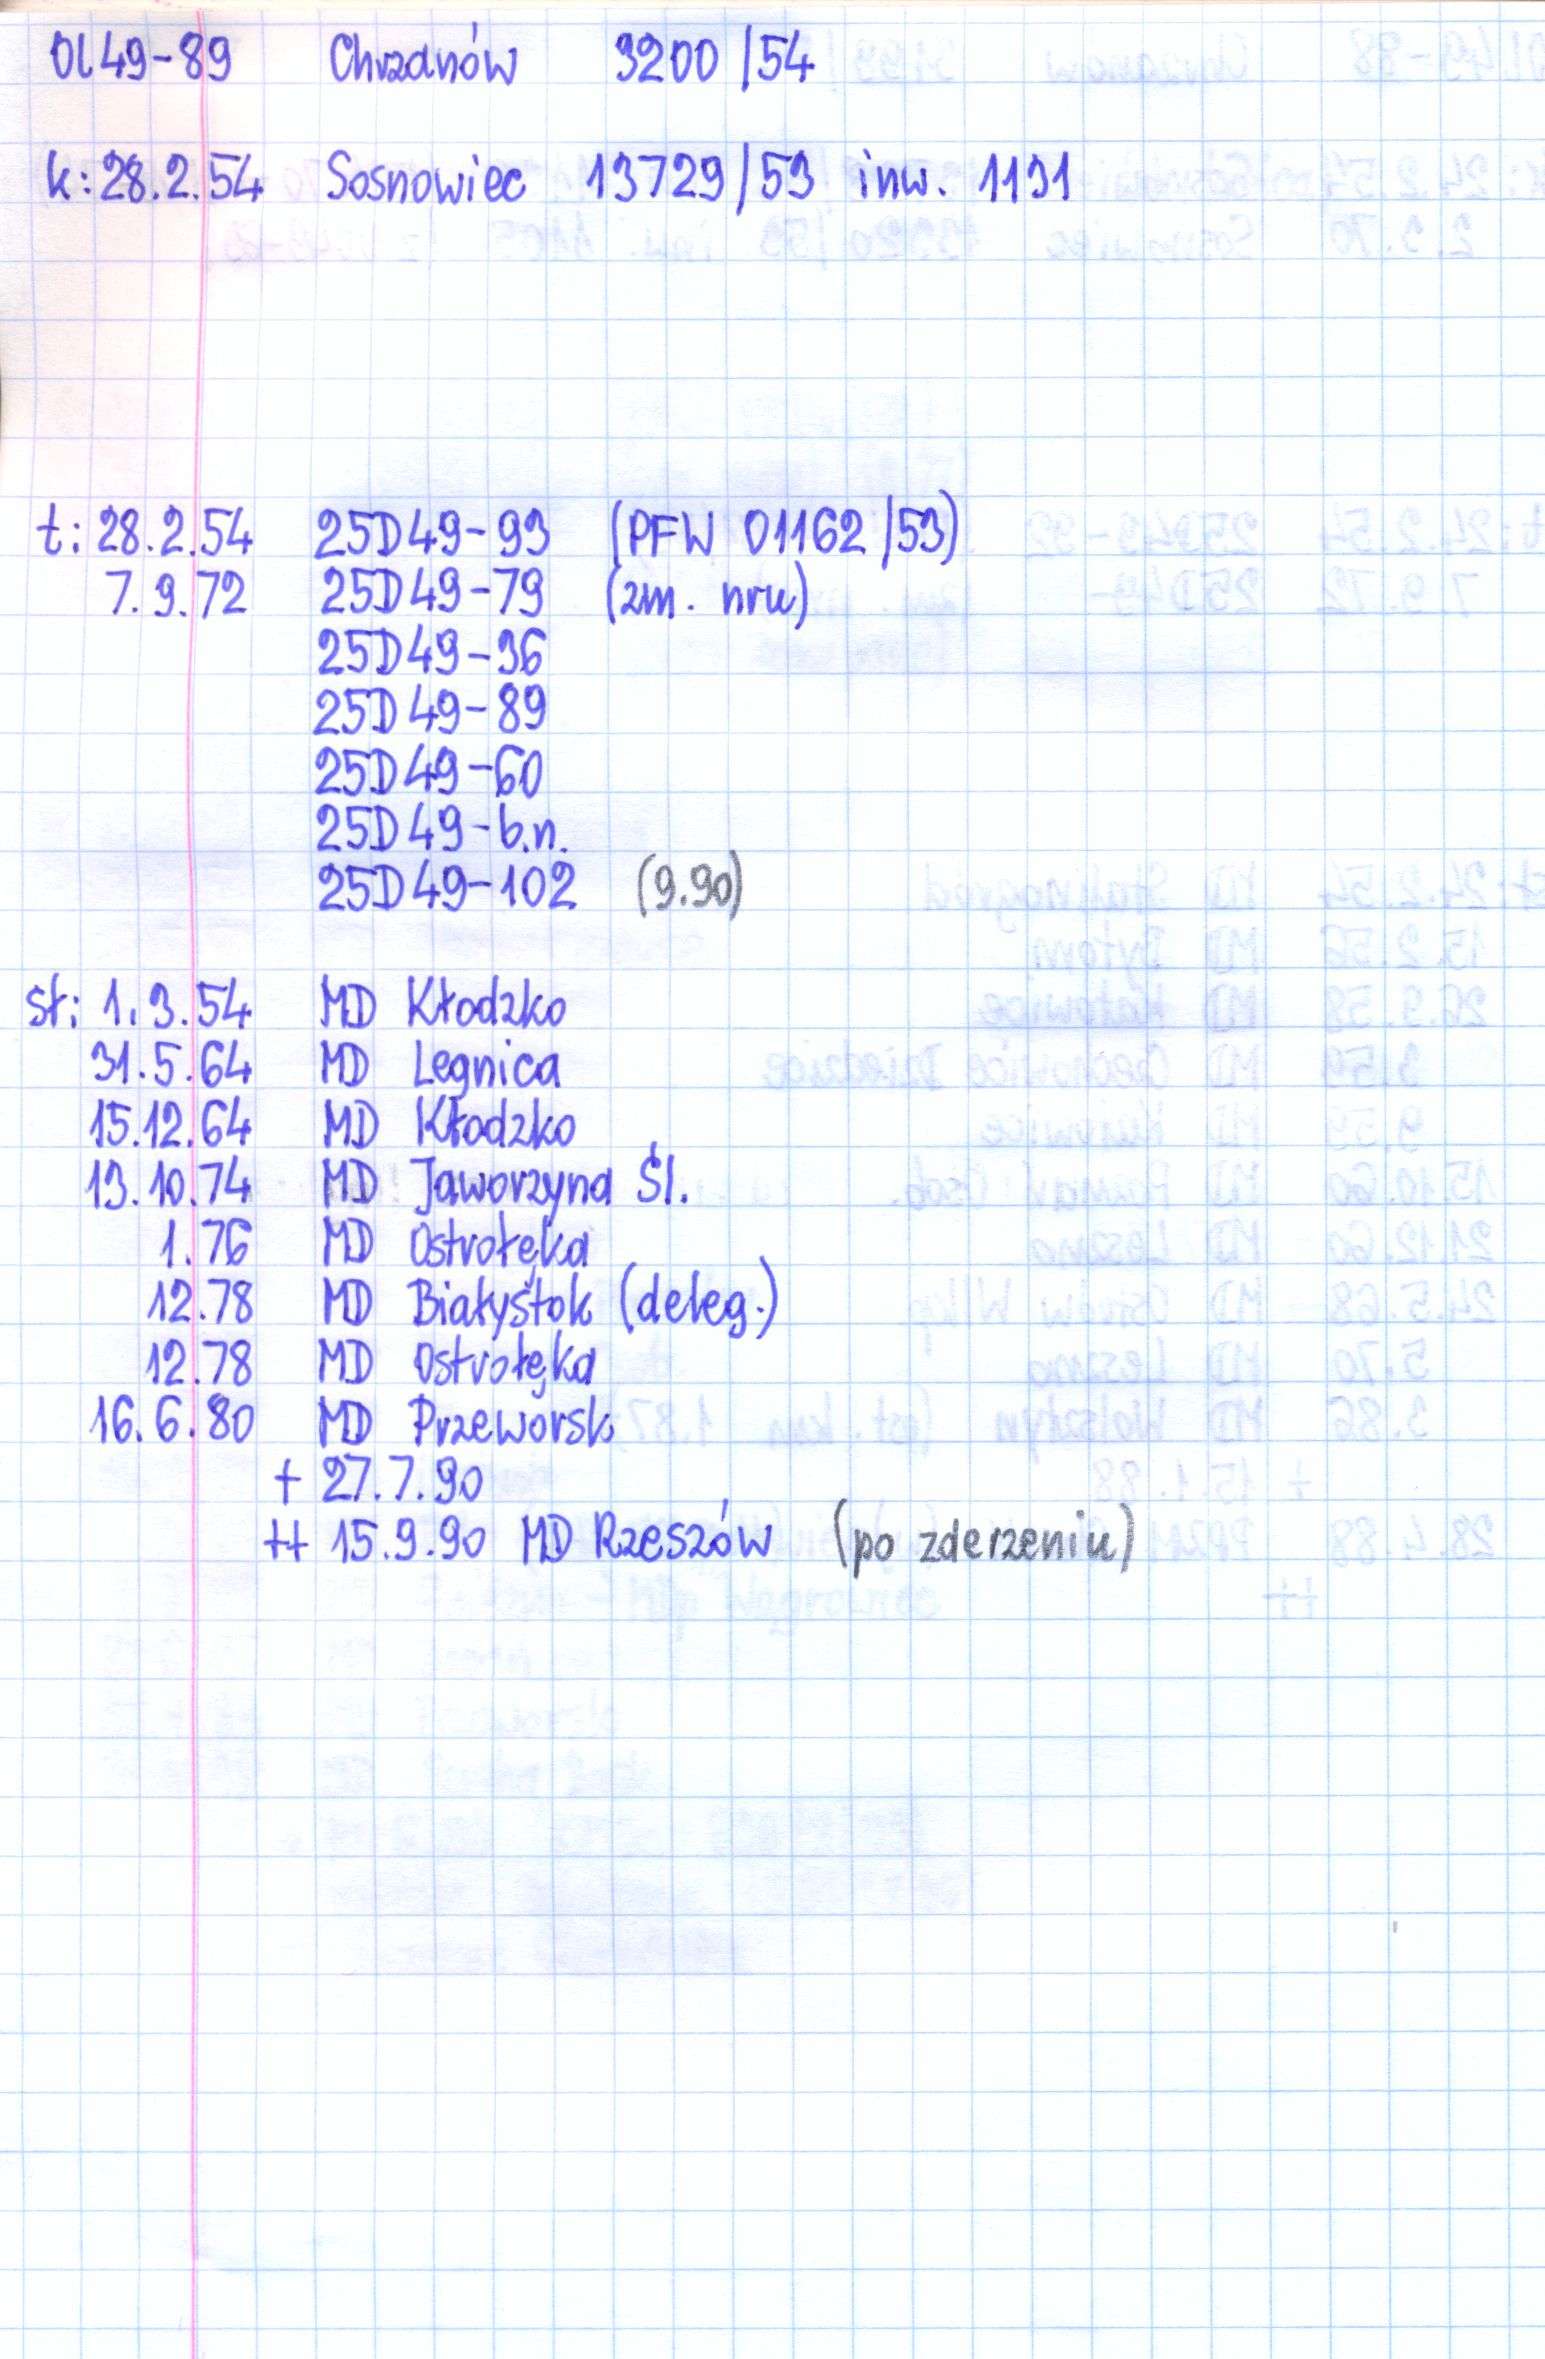 Ol49-89 Chrzanów 3200/54
k: 28.2.54 Sosnowiec 13729/53 inw. 1131
t: 28.2.54 25D49-93 (PFW 01162/53)
7.9.72 25D49-79 (zm. nru)
25D49-36
25D49-89
25D49-60
25D49-b.n.
25D49-102 (9.90)
st: 1.3.54 MD Kłodzko
31.5.64 MD Legnica
15.12.64 MD Kłodzko
13.10.74 MD Jaworzyna Śl.
1.76 MD Ostrołęka
12.78 MD Białystok (deleg.)
12.78 MD Ostrołęka
16.6.80 MD Przeworsk
+ 27.7.90
++ 15.9.90 MD Rzeszów (po zderzeniu)